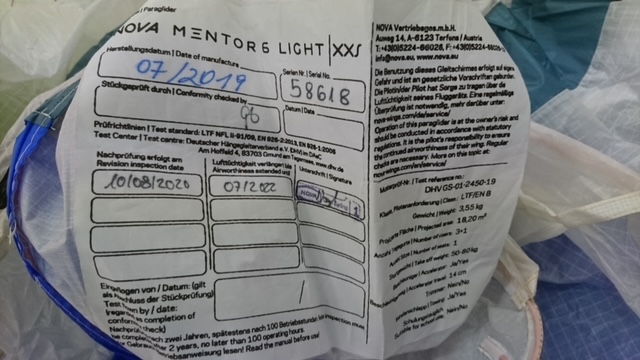 Paraglider
NOVA MENTOR 6 LIGHT | XXS
Herstellungsdatum | Date of manufacture
07/2019
Serien Nr | Serial No.
58618
Stückgeprüft durch | Conformity checked by
Datum | Date
Prüfrichtlinien | Test standard: LTF NFL II-91/09, EN 926-2:2013, EN 926-1:2006
Test Center | Test centre: Deutscher Hängegleiterverband e.V. (DHV) im DAeC
Am Hoffeld 4, 83703 Gmund am Tegernsee, www.dhv.de
Nachprüfung erfolgt am
Revision inspection date
Luftüchtigkeit verlängert bis
Airworthiness extended until
Unterschrift | Signature
10/08/2020
07/2022
Einflogen von / Datum: (gilt
als Abschluss der Stückprüfung)
Test flown by / date:
(regarded as
confirms completion of
check)
Nachprüfung
zwei Jahren, spätestens nach 100 Betriebsstunden
2 years, no later than 100 operating hours.
Betriebsanweisung lesen! Read the manual before use!
NOVA Vertriebsges.m.b.H.
Auweg 14, A-6123 Terfens / Austria
T: +43(0)5224-66026, F: +43(0)5224-66026-
info@nova.eu, www.nova.eu
Die Benutzung dieses Gleitschirmes erfolgt auf eigene
Gefahr und ist an gesetzliche Vorschriften gebunden.
Die Pilotin/der Pilot hat Sorge zu tragen über die
Luftüchtigkeit seines Fluggerätes. Eine regelmäßige
Überprüfung ist notwendig, mehr darüber unter:
nova-wings.com/de/service/
Operation of this paraglider is at the owner's risk and
must be conducted in accordance with statutory
regulations. It is the pilot's responsibility to ensure
the continued airworthiness of their wing. Regular
checks are necessary. More on this topic at:
nova-wings.com/en/service/
Musterprüf-Nr. | Test reference no.:
DHV GS-01-2450-19
Klass. Musteranforderung | Class.: LTF/EN B
Gewicht | Weight: 3,55 kg
Projizierte Fläche | Projected area: 18,20 m²
Anzahl Tragegurte | Number of risers: 3+1
Anzahl Sitze | Number of seats: 1
Startgewicht | Take off weight: 50-80 kg
Beschleuniger | Accelerator: Ja/Yes
Beschleunigerweg | Accelerator: 14 cm
Trimmer: Nein/No
Ja/Yes
Schulungstauglich
Suitable for school use: Nein/No